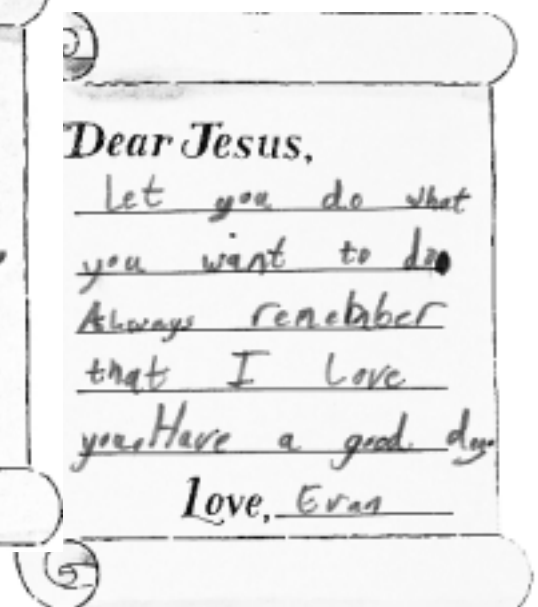 Dear Jesus,
Let you do what
you want to do.
Always remember
that I Love
you. Have a good day.
Love, Evan